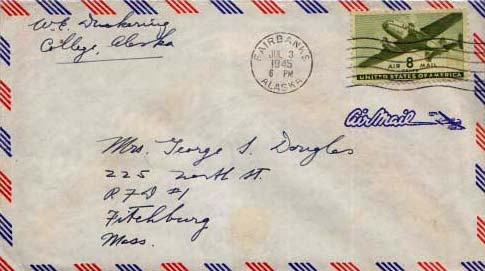 W.E. Duckering
College, Alaska
FAIRBANKS
JUL 3
1945
6 PM
ALASKA
8
AIR MAIL
UNITED STATES OF AMERICA
Air Mail
Mrs. George S. Douglas
225 North St.
RFD #1
Fitchburg
Mass.